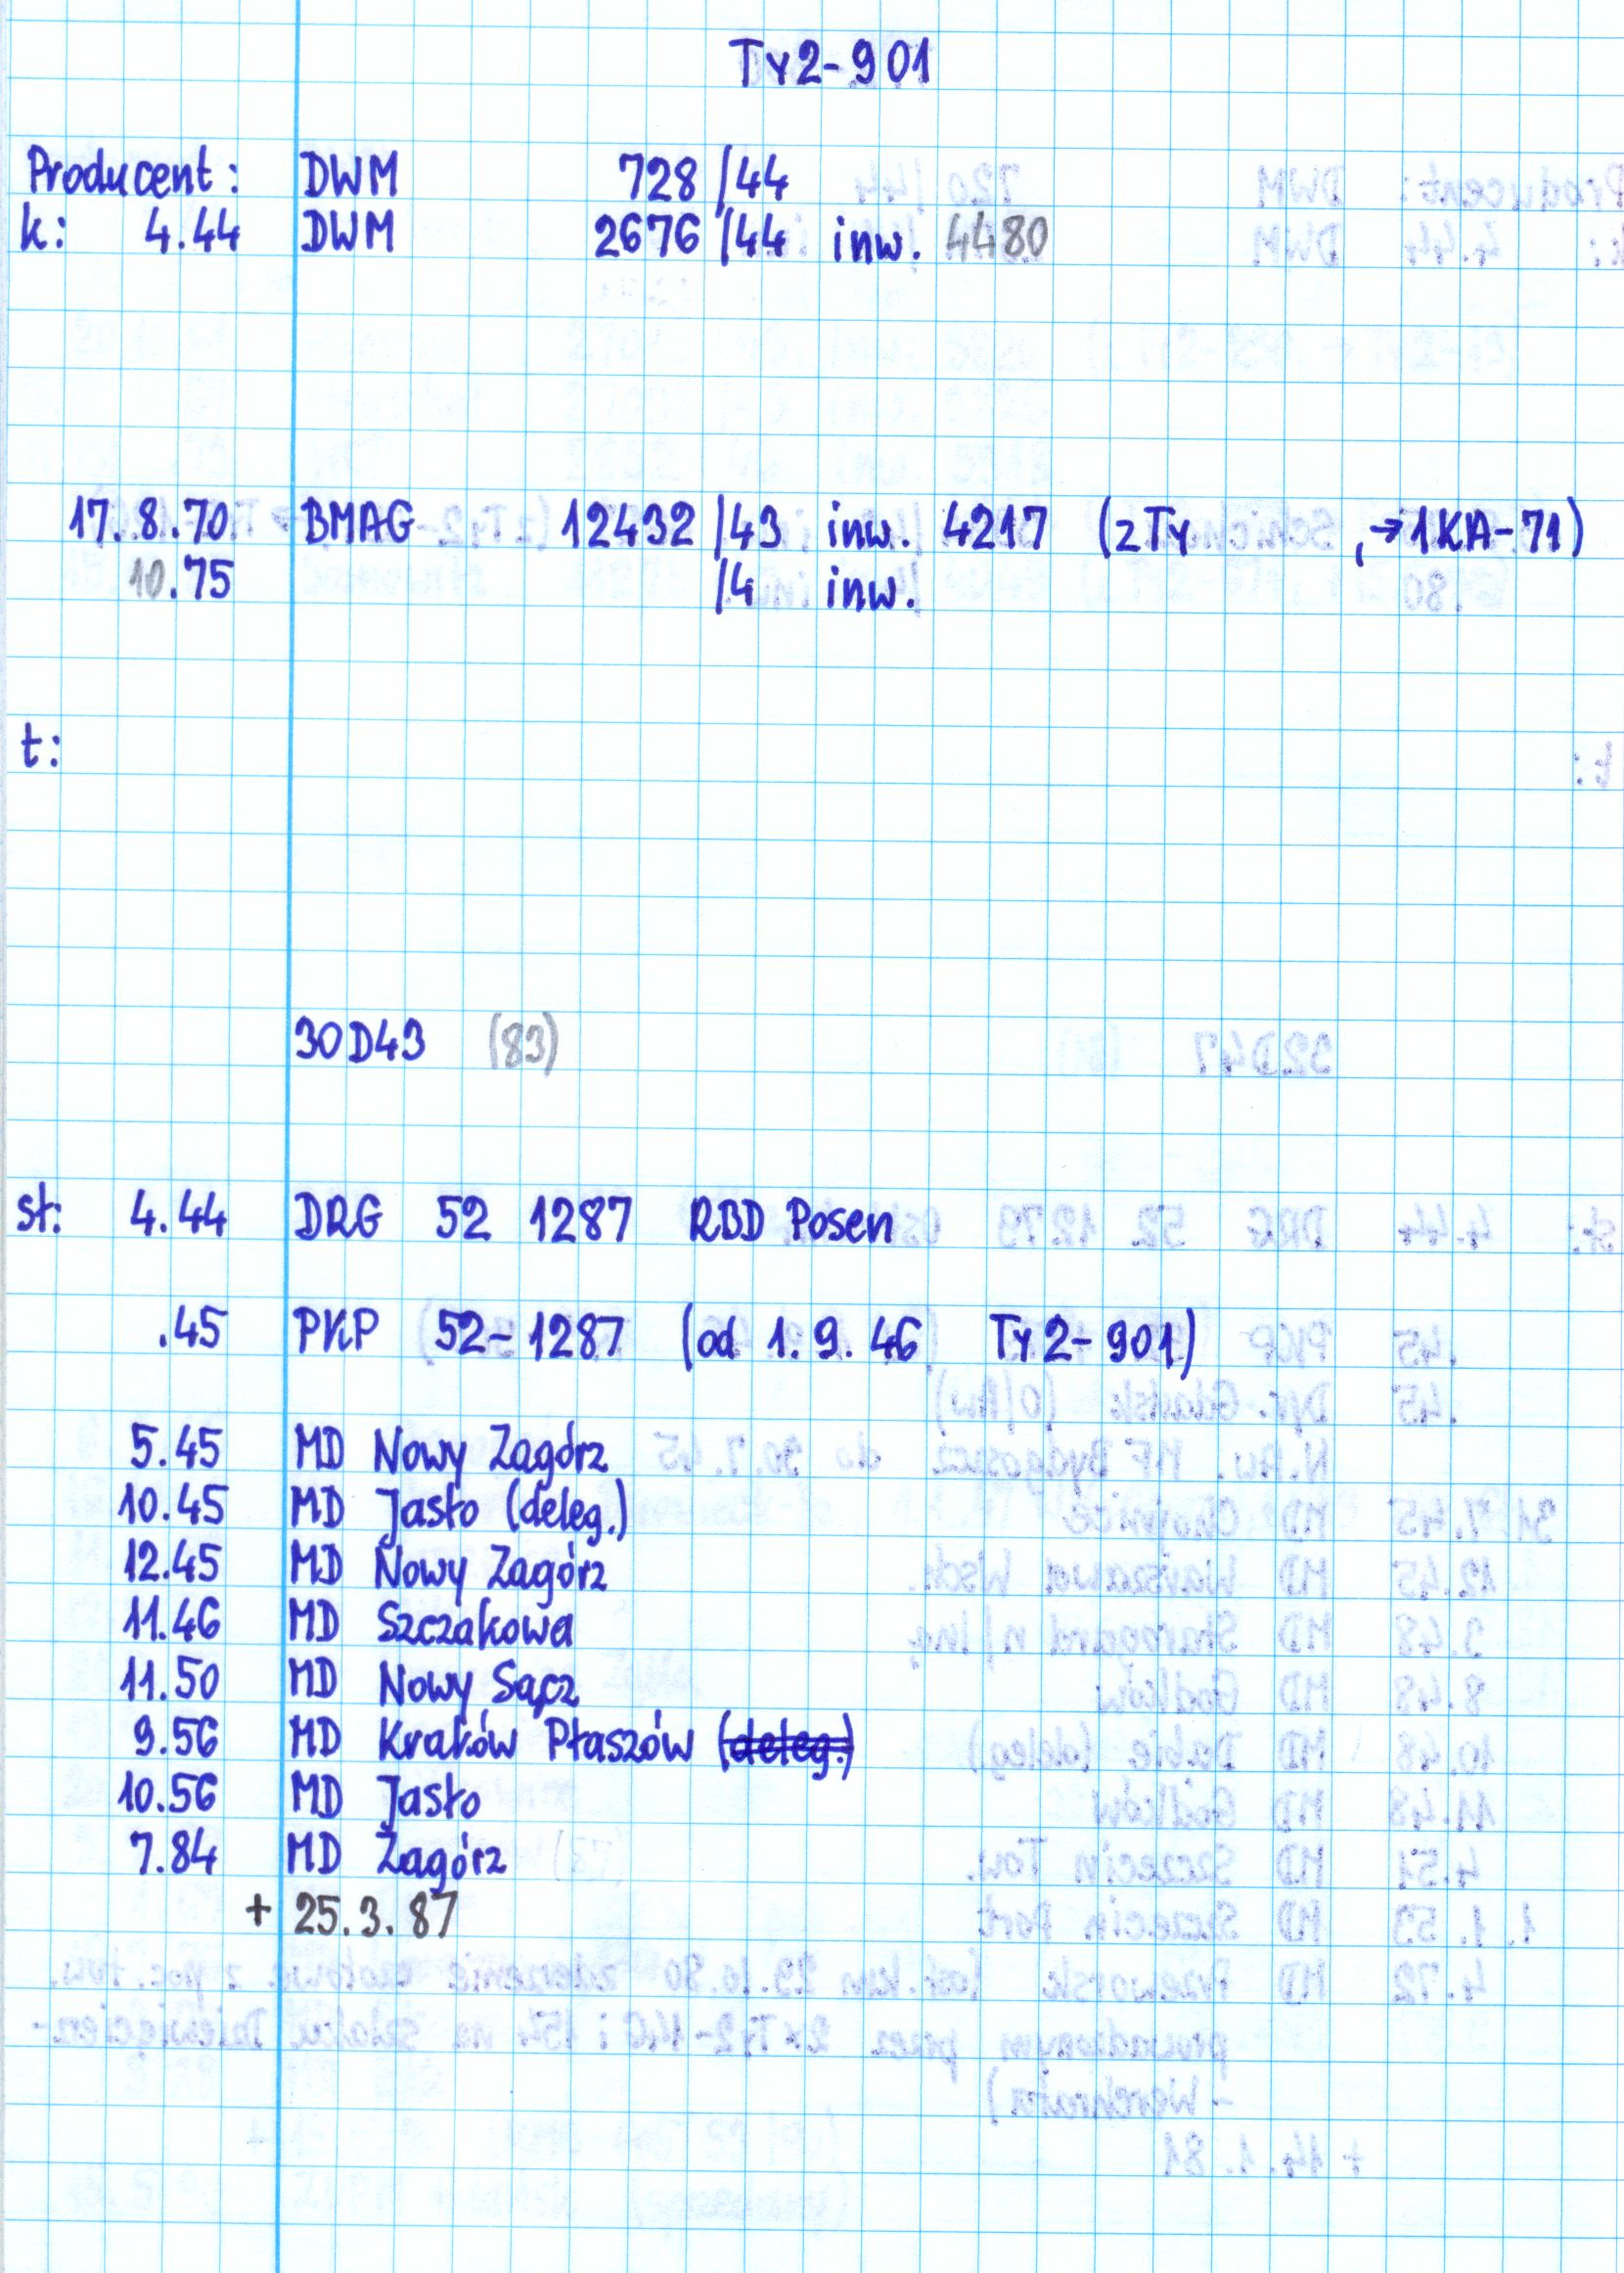 Ty2-901
Producent: DWM 728/44
k: 4.44 DWM 2676/44 inw. 4480
17.8.70 BMAG 12432/43 inw. 4217 (z Ty , →1KA-71)
10.75 /4 inw.
t:
30D43 (83)
st: 4.44 DRG 52 1287 RBD Posen
.45 PKP 52-1287 (od 1.9.46 Ty2-901)
5.45 MD Nowy Zagórz
10.45 MD Jasło (deleg.)
12.45 MD Nowy Zagórz
11.46 MD Szczakowa
11.50 MD Nowy Sącz
9.56 MD Kraków Płaszów (deleg.)
10.56 MD Jasło
7.84 MD Zagórz
+ 25.3.87